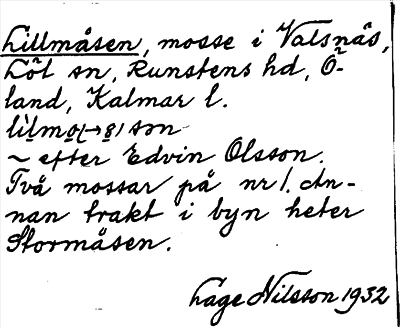 Lillmåsen, mosse i Valsnäs,
Löt sn, Runstens hd, Ö-
land, Kalmar l.
~ efter Edvin Olsson.
Två mossar på nr 1. An-
nan trakt i byn heter
Stormåsen.
Lage Nilsson 1932